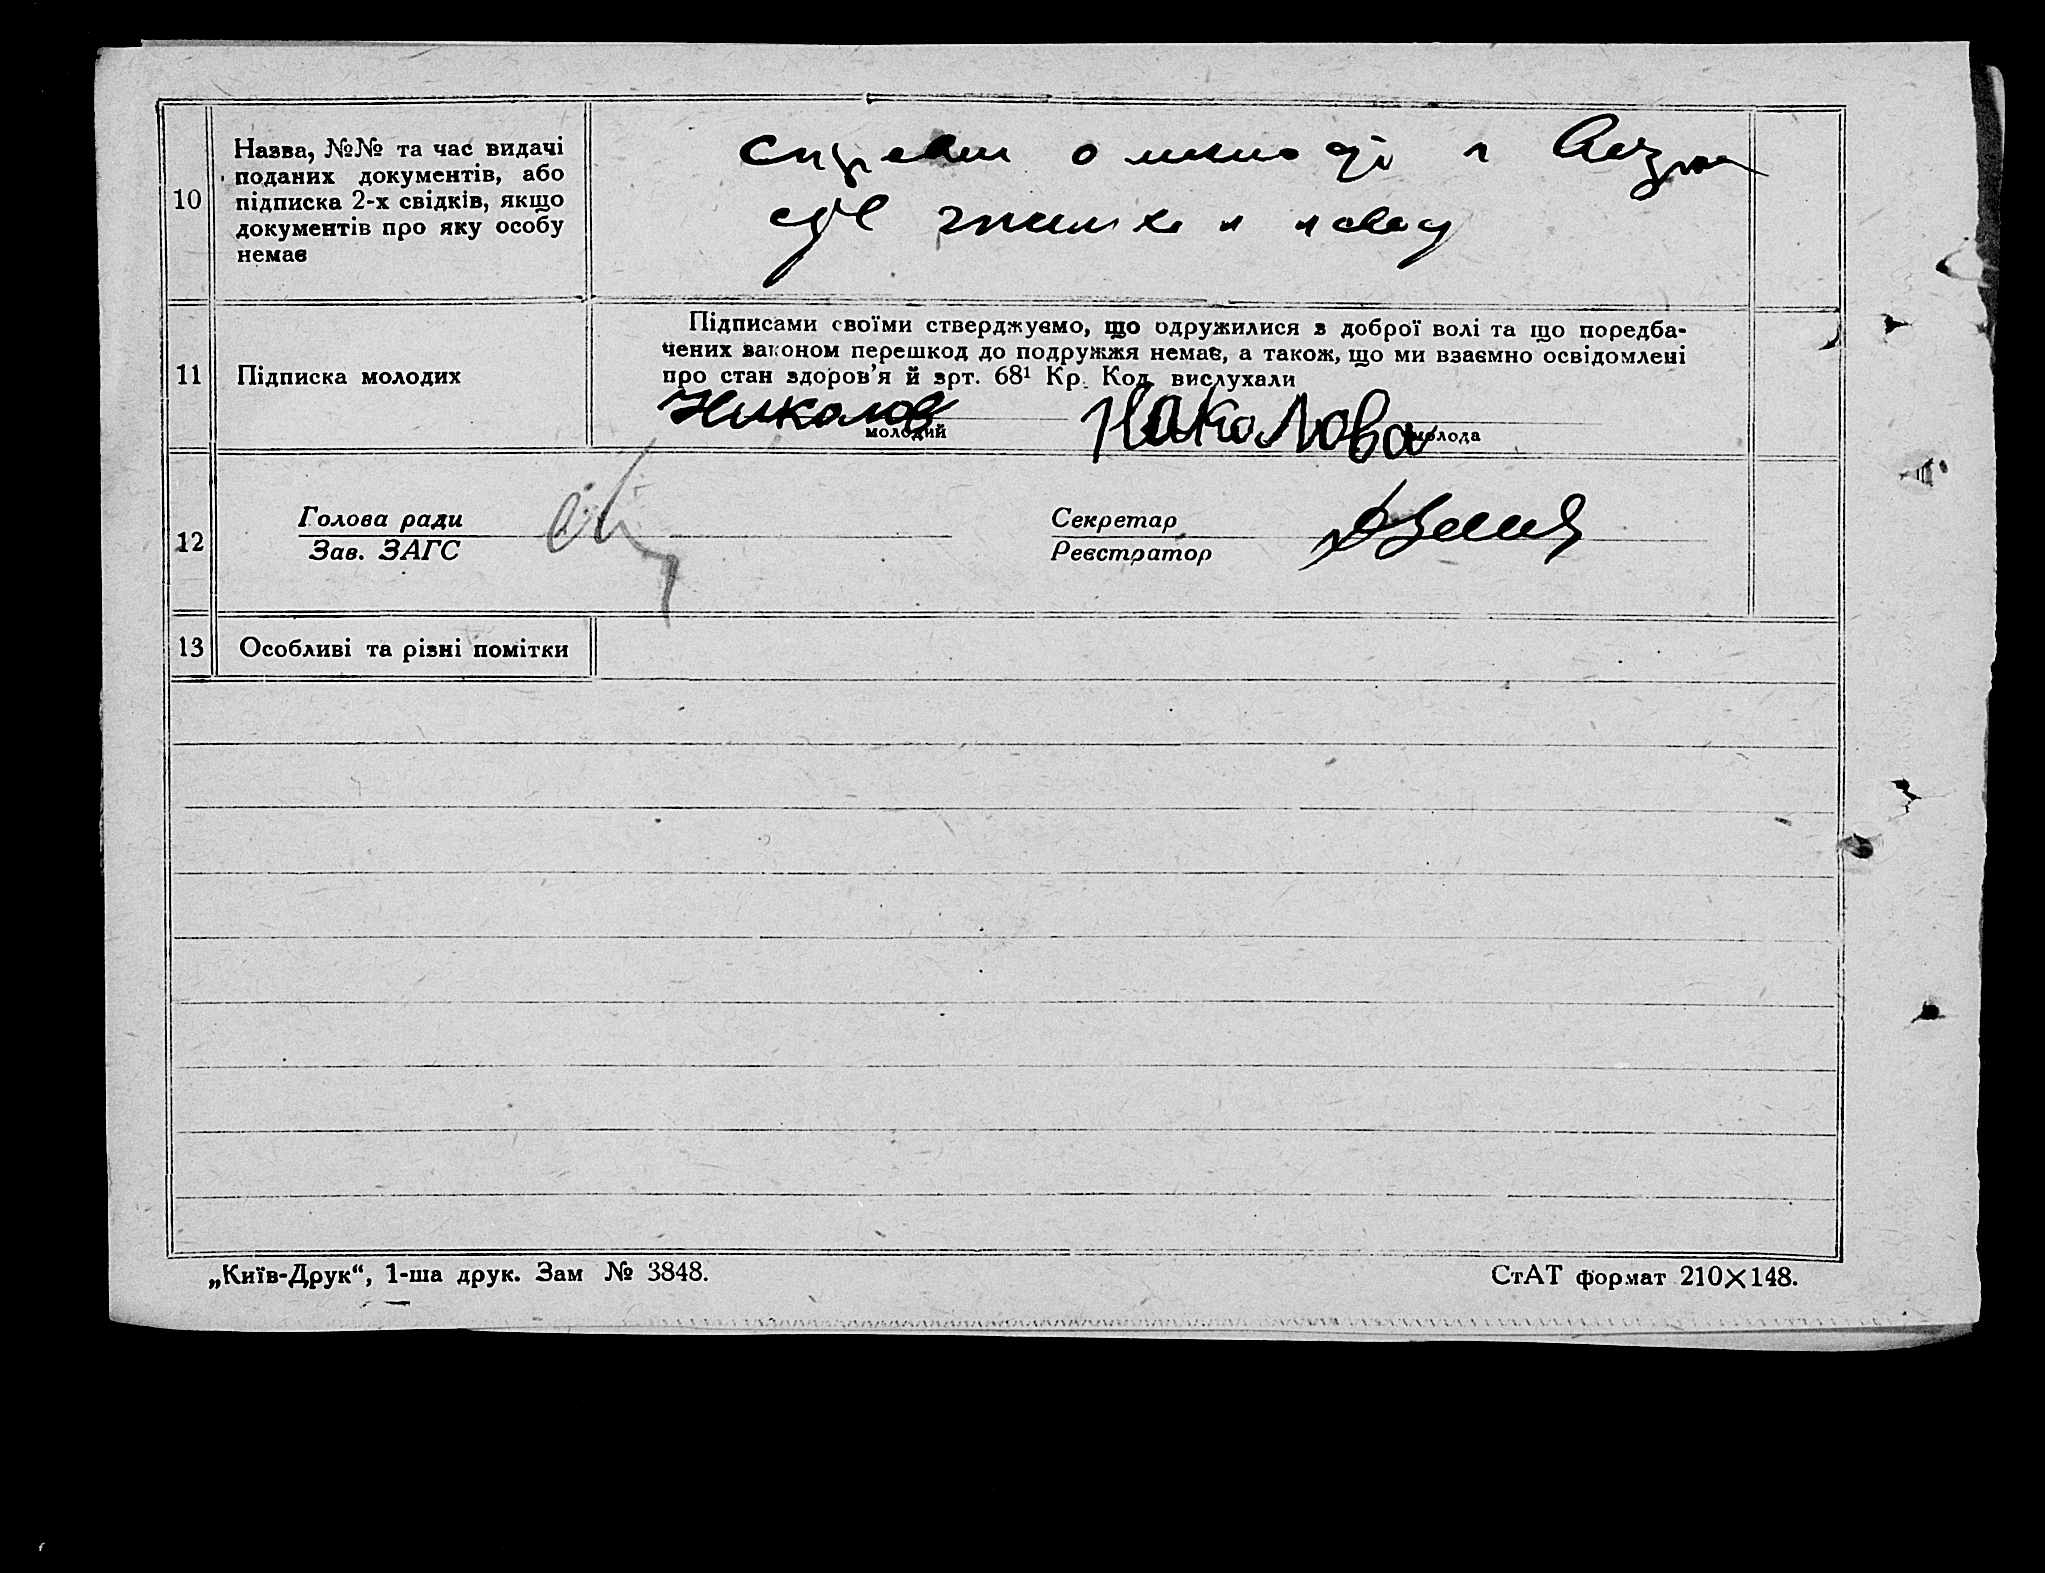 10
Назва, №№ та час видачі
поданих документів, або
підписка 2-х свідків, якщо
документів про яку особу
немає
11
Підписка молодих
Підписами своїми стверджуємо, що одружилися з доброї волі та що поредба-
чених законом перешкод до подружжя немає, а також, що ми взаємно освідомлені
про стан здоров’я й арт. 68¹ Кр. Код. вислухали
Николов
Николова
молодий
молода
12
Голова ради
Зав. ЗАГС
Секретар
Реєстратор
13
Особливі та різні помітки
„Київ-Друк“, 1-ша друк. Зам № 3848.
СтАТ формат 210×148.